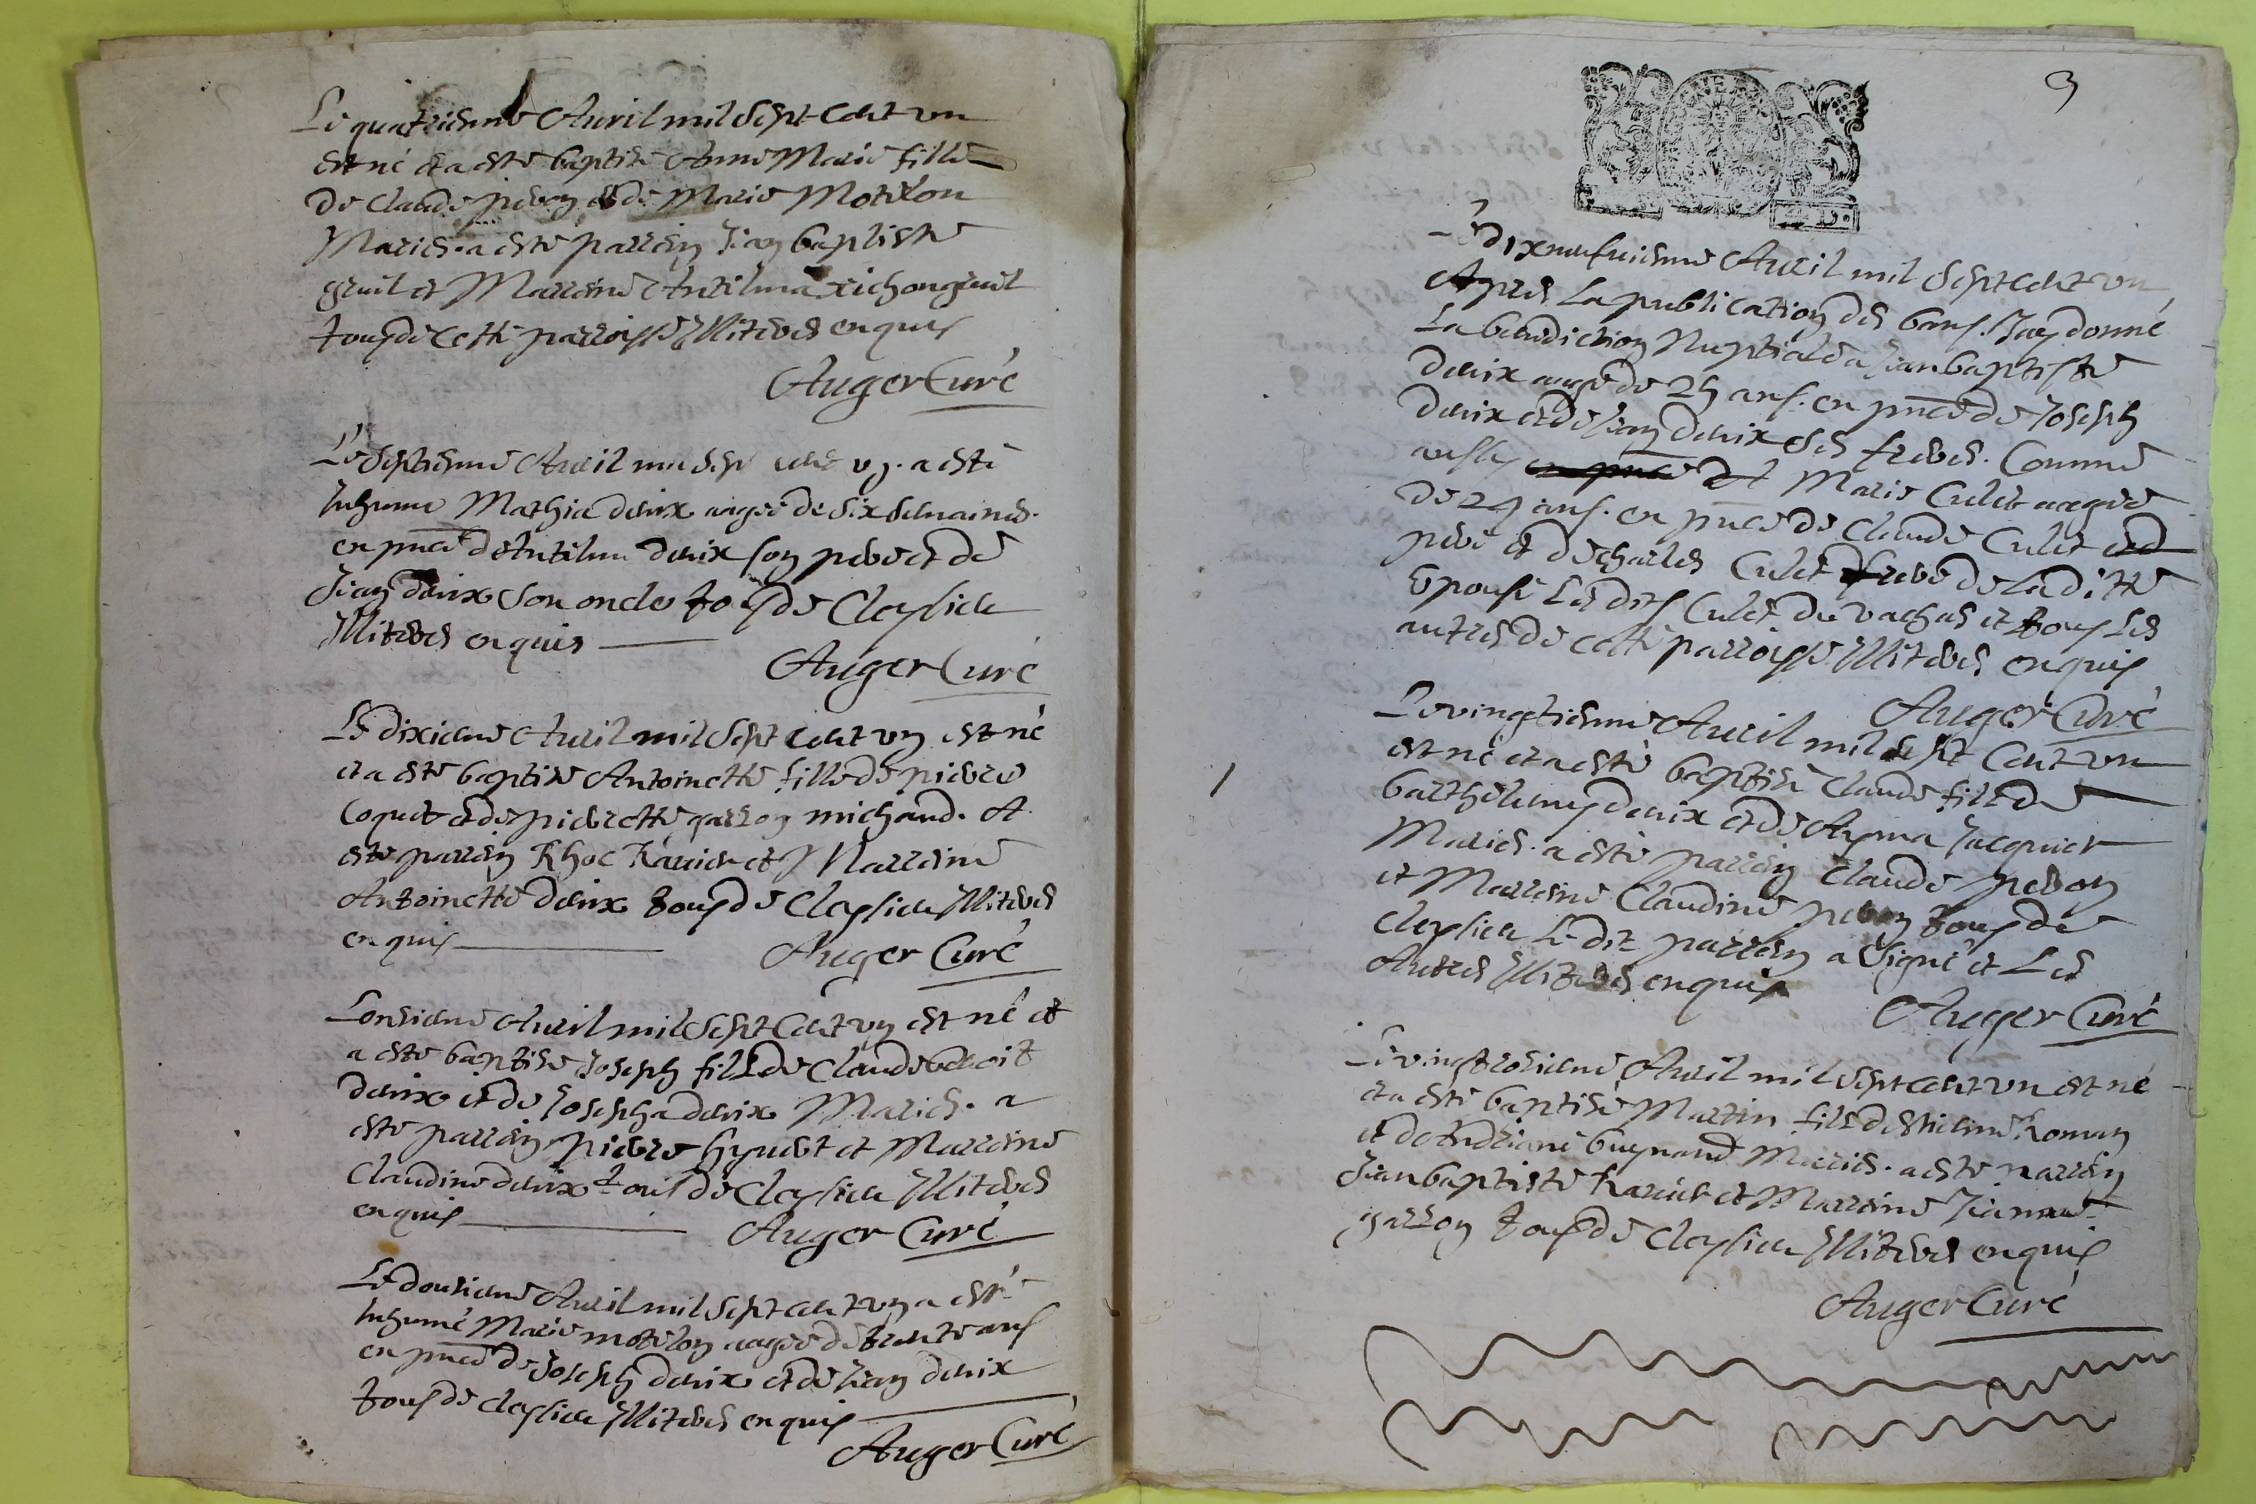 Le quatriesme Auril mil Sept Cent vn
est né et a esté baptisé Anne Marie fille
de Claude peron et de Marie Motillon
Mariés. a esté parrein Jean baptiste
gruil et Marreine Antilma
tous de cette parroisse Illiteres enquis
Auger Curé
Le Septiesme Auril mil Sept cent vn. a esté
Inhumé Mathie deuix aagée de six semaines.
en pnce d'Antilme deuix son pere et de
Jean deuix son oncle tous de Cleyzieu
Illiteres enquis
Auger Curé
Le dixieme Auril mil Sept Cent vn est né
et a este baptisé Antoinette fille de pierre
Coquet et de pierrette garron michaud. A
este parrein Rhoc Rauier et Marreine
Antoinette deuix tous de Cleyzieu Illiteres
enquis
Auger Curé
L'onzieme Auril mil Sept Cent vn est né et
a este baptisé Joseph fils de Claude benoit
deuix et de Josepha deuix Mariés. a
este parrein pierre et Marreine
Claudine deuix tous de Cleyzieu Illiteres
enquis
Auger Curé
Le douzieme Auril mil Sept cent vn a esté
Inhumé Marie motillon aagée de trente ans
en pnce de Joseph deuix et de Jean deuix
tous de Cleyzieu Illiteres enquis
Auger Curé
9
Le dixneufuiesme Auril mil Sept Cent vn
Apres La publication des bans. J'ay donné
La benediction Nuptiale a Jean baptiste
deuix aagé de 25 ans. en pnce de Joseph
deuix et de Jean deuix ses freres. Comme
aussy en pnce de Marie Culet aagée
de 24 ans. en pnce de Claude Culet
pere et de charles Culet frere de Laditte
Epouse Lesdits Culet de vachas et tous Les
autres de cette parroisse Illiteres enquis
Auger Curé
Le vingtiesme Auril mil Sept Cent vn
est né et a esté baptisé Claude fils de
barthelemy deuix et de Ayma Jacquier
Mariés. a esté parrein Claude peron
et Marreine Claudine peron tous de
Cleyzieu Le dit parrein a Signé et Les
Autres Illiteres enquis
Auger Curé
Le vingtroisieme Auril mil Sept Cent vn est né
et a esté baptisé Martin fils d'Estienne Roman
et d'Andriane buynand Mariés. a este parrein
Jean baptiste Rauier et Marreine Jeanne
garron tous de Cleyzieu Illiteres enquis
Auger Curé